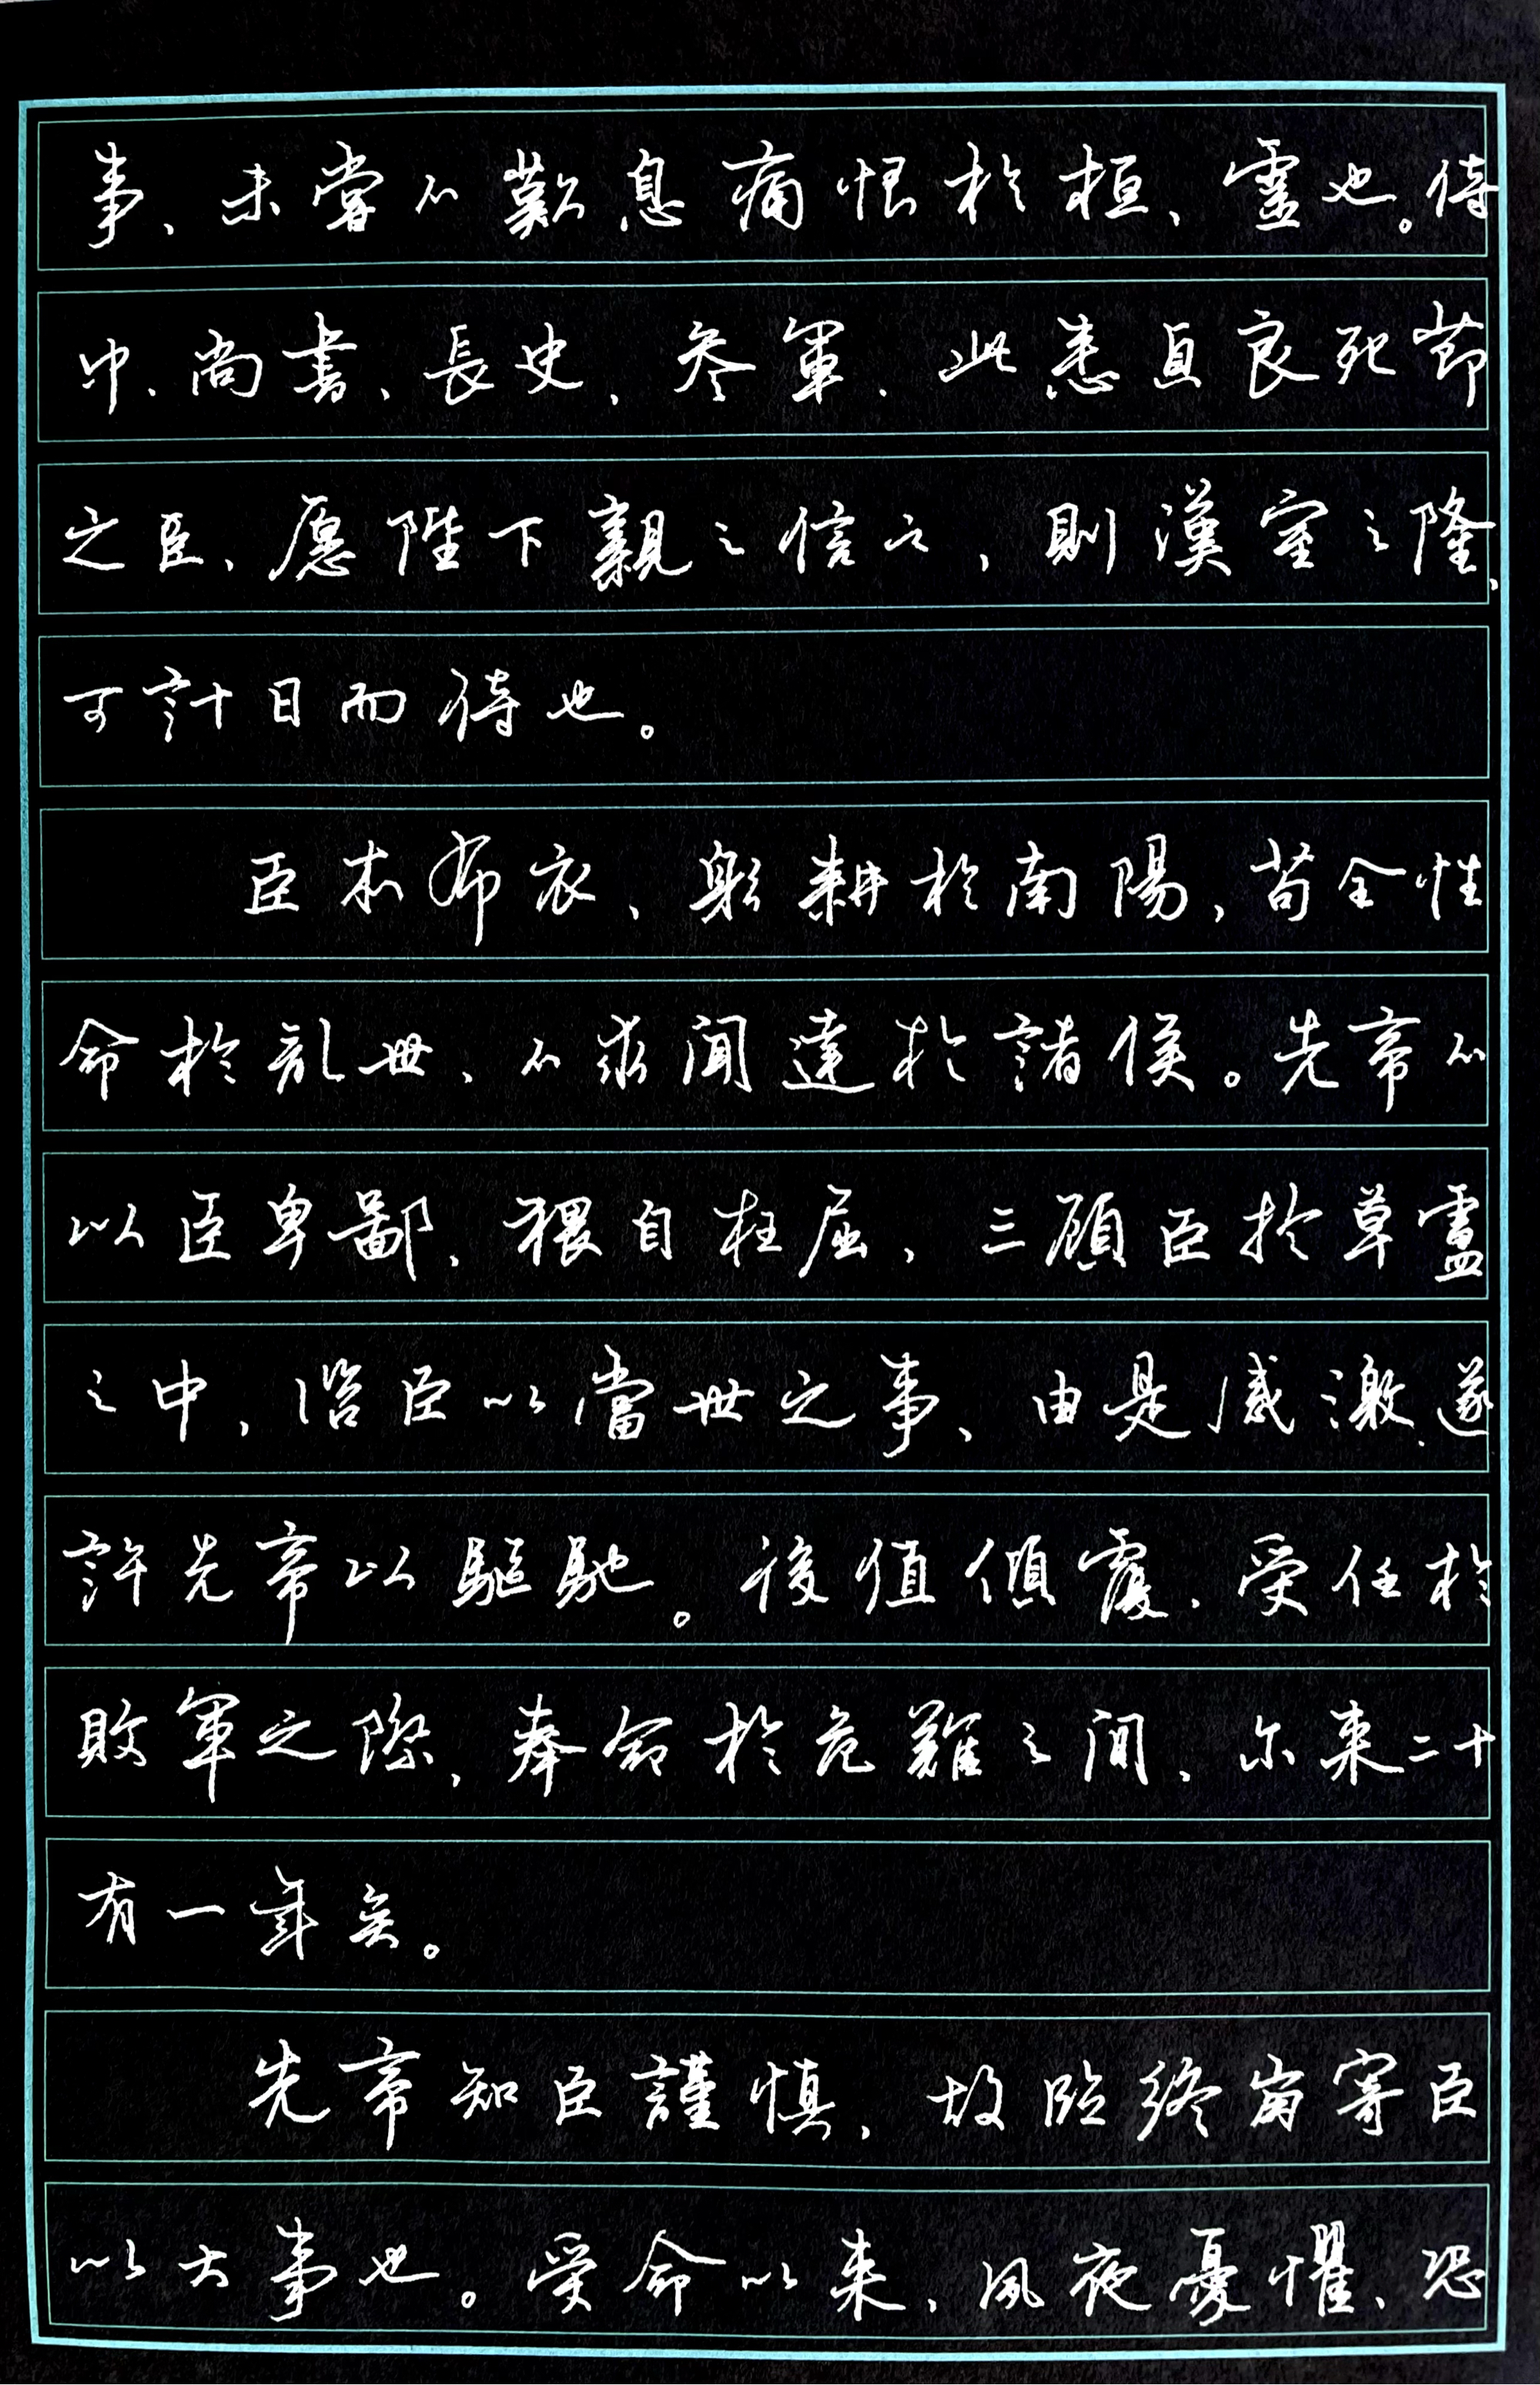 事、未嘗不歎息痛恨於桓、靈也。侍
中、尚書、長史、參軍、此悉貞良死節
之臣、愿陛下親之信之，則漢室之隆、
可計日而待也。
臣本布衣、躬耕於南陽，苟全性
命於亂世、不求聞達於諸侯。先帝不
以臣卑鄙、猥自枉屈，三顧臣於草廬
之中，諮臣以當世之事、由是感激、遂
許先帝以驅馳。後值傾覆、受任於
敗軍之際，奉命於危難之間，尔來二十
有一年矣。
先帝知臣謹慎，故臨終崩寄臣
以大事也。受命以來，夙夜憂懼、恐